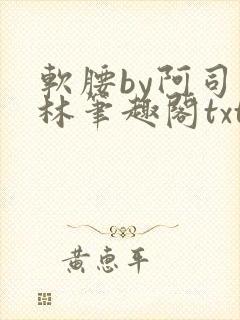 軟腰by阿司
林筆趣閣txt
黃惠平